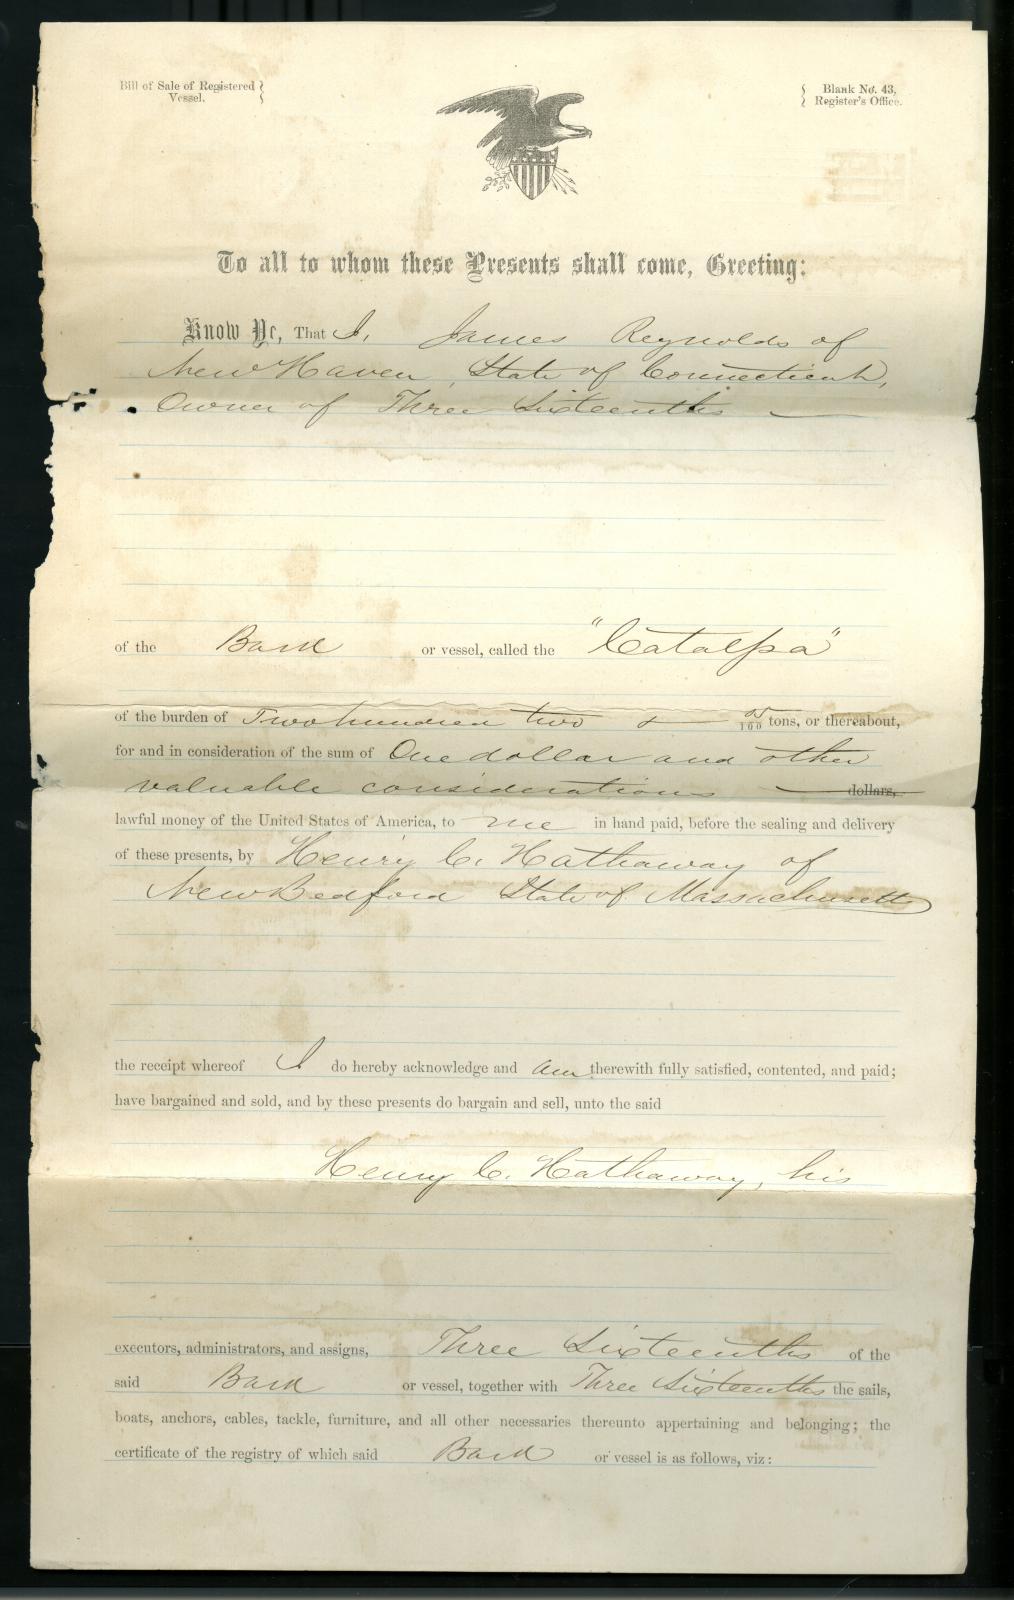 Bill of Sale of Registered
Vessel.
Blank No. 43,
Register's Office.
To all to whom these Presents shall come, Greeting:
Know Ye, That I, James Reynolds of
New Haven, State of Connecticut,
Owner of Three Sixteenths
of the Bark or vessel, called the "Catalpa"
of the burden of Two hundred two & 05/100 tons, or thereabout,
for and in consideration of the sum of One dollar and other
valuable considerations dollars,
lawful money of the United States of America, to me in hand paid, before the sealing and delivery
of these presents, by Henry C. Hathaway of
New Bedford State of Massachusetts
the receipt whereof I do hereby acknowledge and am therewith fully satisfied, contented, and paid;
have bargained and sold, and by these presents do bargain and sell, unto the said
Henry C. Hathaway, his
executors, administrators, and assigns, Three Sixteenths of the
said Bark or vessel, together with Three Sixteenths the sails,
boats, anchors, cables, tackle, furniture, and all other necessaries thereunto appertaining and belonging; the
certificate of the registry of which said Bark or vessel is as follows, viz: